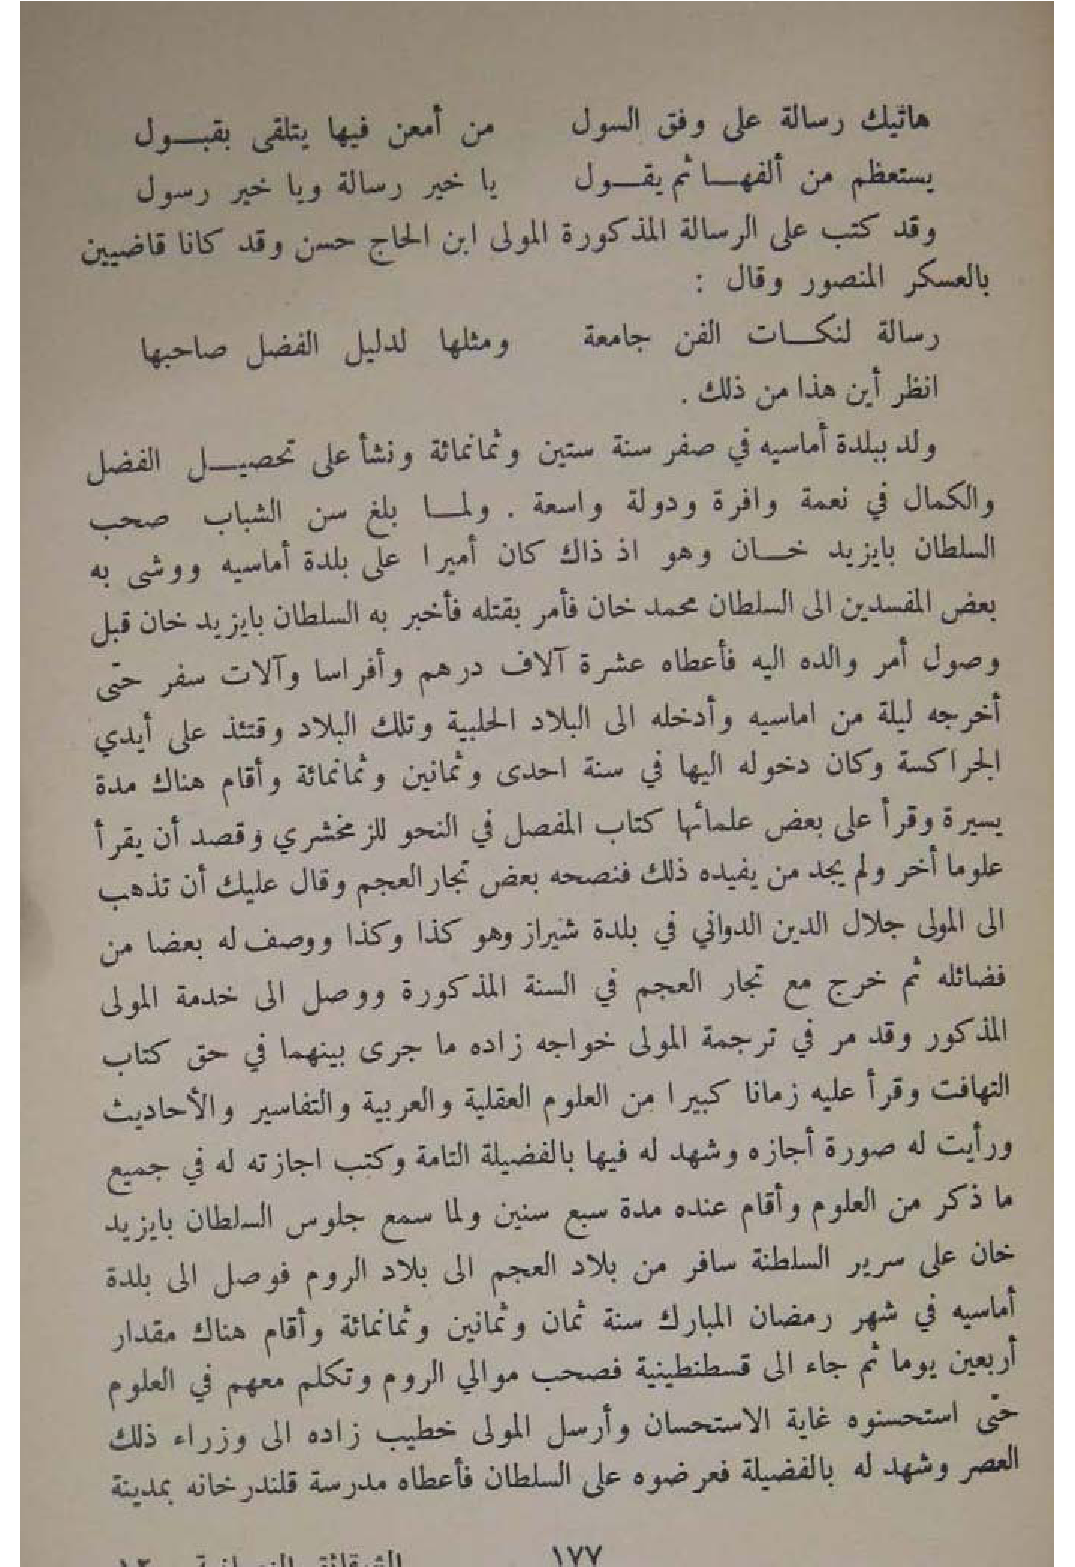 هاتيك رسالة على وفق السول من أمعن فيها يتلقى بقبـــول
يستعظم من ألفهـــا ثم يقـــول يا خير رسالة ويا خير رسول
وقد كتب على الرسالة المذكورة المولى ابن الحاج حسن وقد كانا قاضيين
بالعسكر المنصور وقال :
رسالة لنكـــات الفن جامعة ومثلها لدليل الفضل صاحبها
انظر أين هذا من ذلك .
ولد ببلدة أماسيه في صفر سنة ستين وثمانمائة ونشأ على تحصيـــل الفضل
والكمال في نعمة وافرة ودولة واسعة . ولمـــا بلغ سن الشباب صحب
السلطان بايزيد خـــان وهو اذ ذاك كان أميرا على بلدة أماسيه ووشى به
بعض المفسدين الى السلطان محمد خان فأمر بقتله فأخبر به السلطان بايزيد خان قبل
وصول أمر والده اليه فأعطاه عشرة آلاف درهم وأفراسا وآلات سفر حتى
أخرجه ليلة من اماسيه وأدخله الى البلاد الحلبية وتلك البلاد وقتئذ على أيدي
الجراكسة وكان دخوله اليها في سنة احدى وثمانين وثمانمائة وأقام هناك مدة
يسيرة وقرأ على بعض علمائها كتاب المفصل في النحو للزمخشري وقصد أن يقرأ
علوما أخر ولم يجد من يفيده ذلك فنصحه بعض تجار العجم وقال عليك أن تذهب
الى المولى جلال الدين الدواني في بلدة شيراز وهو كذا وكذا ووصف له بعضا من
فضائله ثم خرج مع تجار العجم في السنة المذكورة ووصل الى خدمة المولى
المذكور وقد مر في ترجمة المولى خواجه زاده ما جرى بينهما في حق كتاب
التهافت وقرأ عليه زمانا كبيرا من العلوم العقلية والعربية والتفاسير والأحاديث
ورأيت له صورة أجازه وشهد له فيها بالفضيلة التامة وكتب اجازته له في جميع
ما ذكر من العلوم وأقام عنده مدة سبع سنين ولما سمع جلوس السلطان بايزيد
خان على سرير السلطنة سافر من بلاد العجم الى بلاد الروم فوصل الى بلدة
أماسيه في شهر رمضان المبارك سنة ثمان وثمانين وثمانمائة وأقام هناك مقدار
أربعين يوما ثم جاء الى قسطنطينية فصحب موالي الروم وتكلم معهم في العلوم
حتى استحسنوه غاية الاستحسان وأرسل المولى خطيب زاده الى وزراء ذلك
العصر وشهد له بالفضيلة فعرضوه على السلطان فأعطاه مدرسة قلندرخانه بمدينة
١٧٧